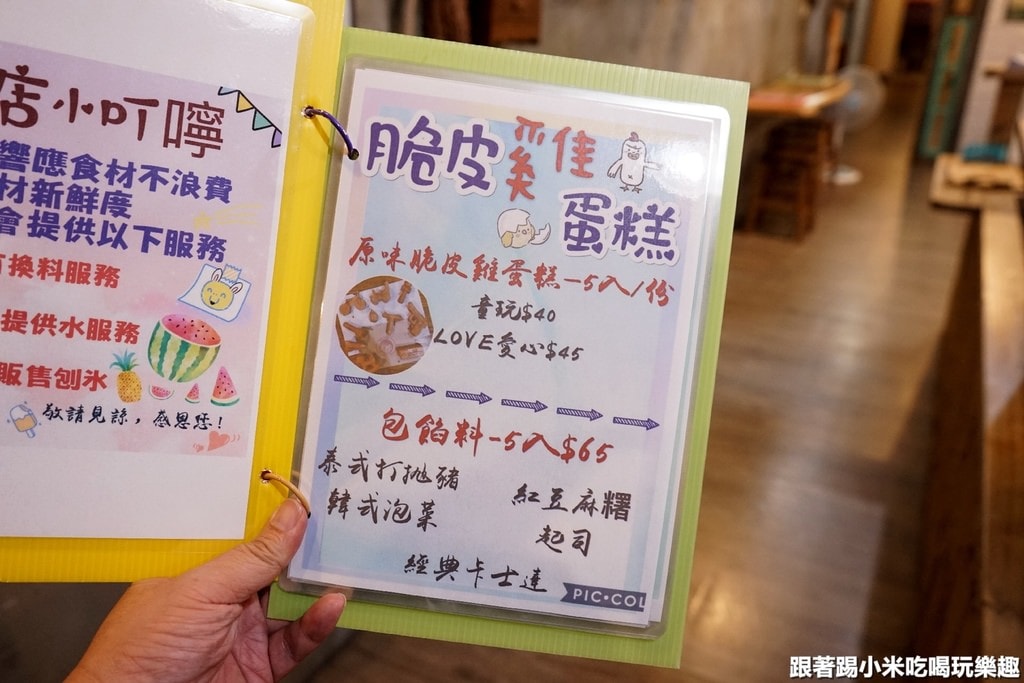 店小叮嚀
響應食材不浪費
材新鮮度
會提供以下服務
換料服務
提供水服務
販售刨氷
敬請見諒，感恩您！
脆皮雞佳
蛋糕
原味脆皮雞蛋糕-5入/份
童玩$40
LOVE愛心$45
包餡料-5入$65
泰式打拋豬
韓式泡菜
紅豆麻糬
起司
經典卡士達
PIC•COL
跟著踢小米吃喝玩樂趣